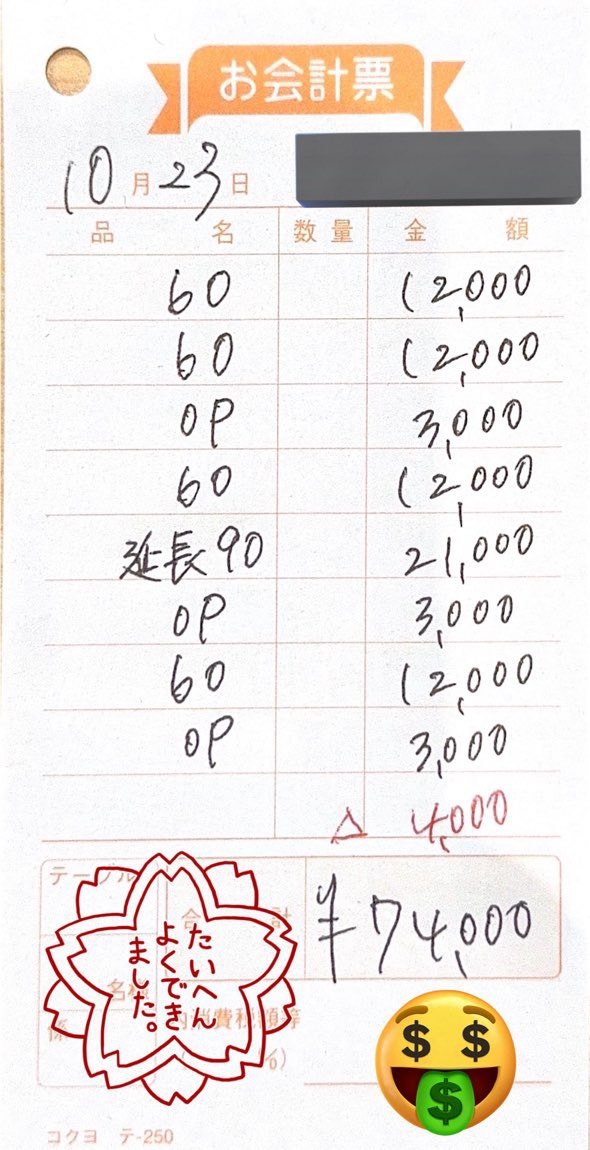 お会計票
10月23日
品名 数量 金額
60 12,000
60 12,000
OP 3,000
60 12,000
延長90 21,000
OP 3,000
60 12,000
OP 3,000
△ 4,000
テーブル
合計 ¥74,000
名様
係
内消費税額等
%)
たいへん
よくでき
ました。
コクヨ テ-250